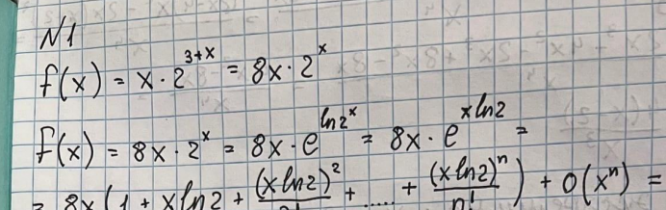 N1
f(x) = x · 2^{3+x} = 8x · 2^x
f(x) = 8x · 2^x = 8x · e^{ln2^x} = 8x · e^{xln2} =
= 8x(1 + xln2 + (xln2)^2/2! + .... + (xln2)^n/n!) + O(x^n) =